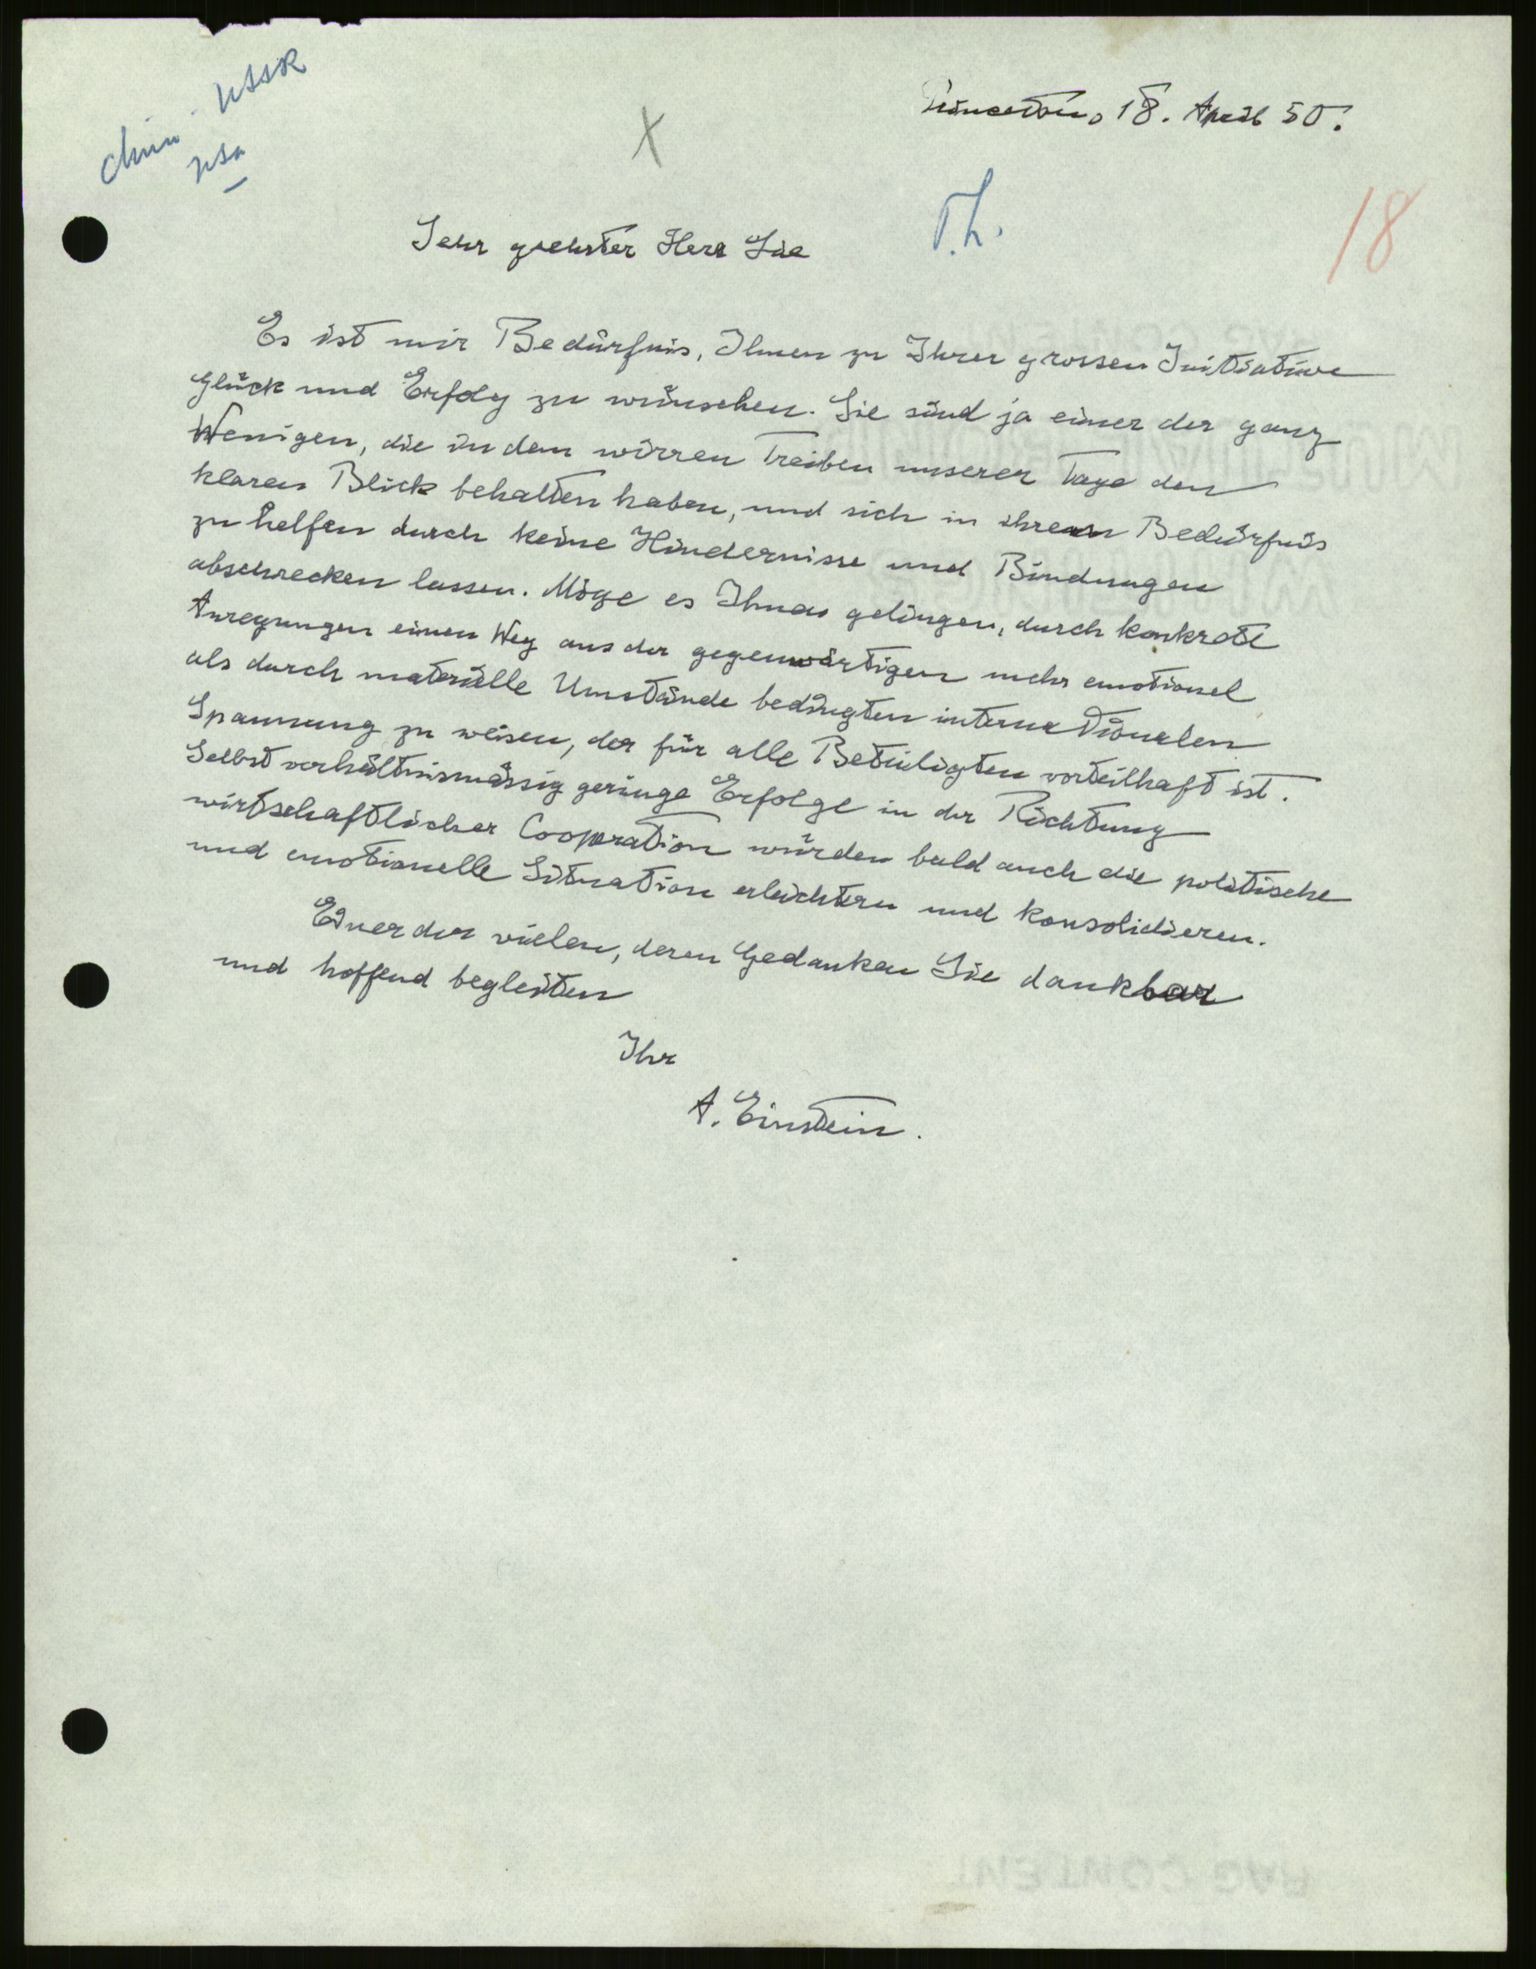 chin - USSR
USA
Princeton, 18. April 50.
X
T.L.
18
Sehr geehrter Herr Lie
Es ist mir Bedürfnis, Ihnen zu Ihrer grossen Initiative
Glück und Erfolg zu wünschen. Sie sind ja einer der ganz
Wenigen, die in dem wirren Treiben unserer Tage den
klaren Blick behalten haben, und sich in ihrem Bedürfnis
zu helfen durch keine Hindernisse und Bindungen
abschrecken lassen. Möge es Ihnen gelingen, durch konkrete
Anregungen einen Weg aus der gegenwärtigen mehr emotionel
als durch materielle Umstände bedingten internationalen
Spannung zu weisen, der für alle Beteiligten vorteilhaft ist.
Selbst verhältnismässig geringe Erfolge in der Richtung
wirtschaftlicher Cooperation würden bald auch die politische
und emotionelle Situation erleichtern und konsolidieren.
Einer der vielen, deren Gedanken Sie dankbar
und hoffend begleiten
Ihr
A. Einstein.
RAG CONTENT